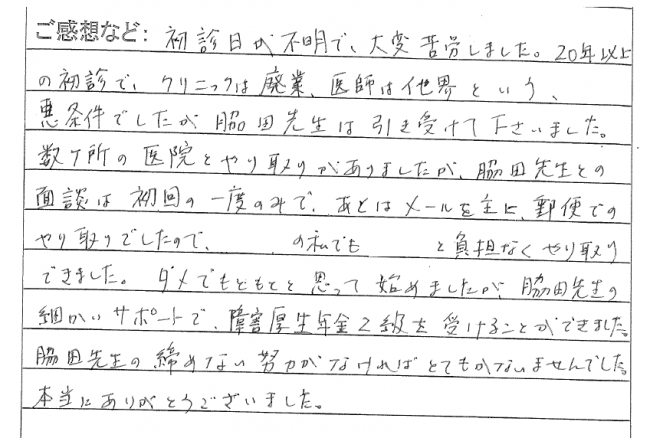 ご感想など: 初診日が不明で、大変苦労しました。20年以上
の初診で、クリニックは廃業、医師は他界という、
悪条件でしたが脇田先生は引き受けて下さいました。
数ヶ所の医院とやり取りがありましたが、脇田先生との
面談は初回の一度のみで、あとはメールを主に、郵便での
やり取りでしたので、 の私でも と負担なくやり取り
できました。ダメでもともとと思って始めましたが、脇田先生の
細かいサポートで、障害厚生年金2級を受けることができました。
脇田先生の締めない努力がなければとてもかないませんでした。
本当にありがとうございました。